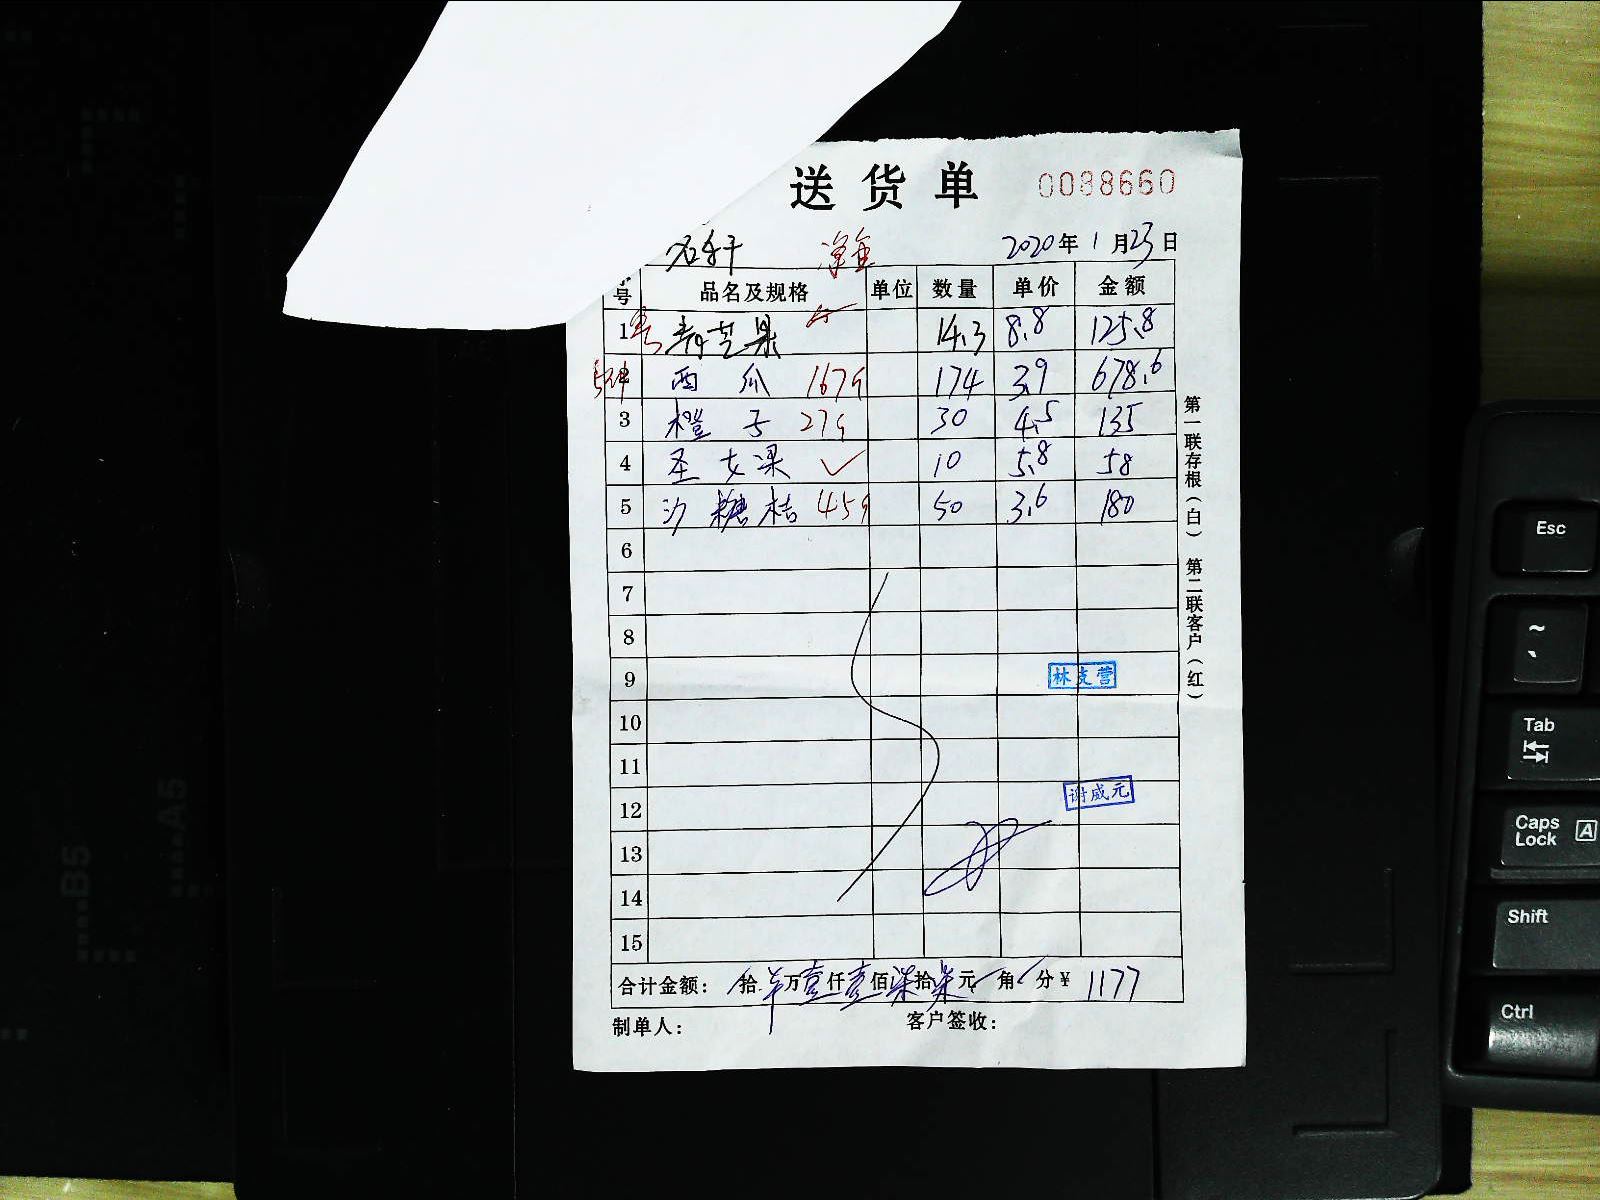 送货单 0088660
2020年1月23日
号 品名及规格 单位 数量 单价 金额
1 青芒果 14.3 8.8 125.8
2 西瓜 167 174 3.9 678.6
3 橙子 27 30 4.5 135
4 圣女果 ✓ 10 5.8 58
5 沙糖桔 45 50 3.6 180
6
7
8
9 林支营
10
11
12 谢威元
13
14
15
合计金额: 拾 万壹仟壹佰柒拾柒元 角 分¥ 1177
制单人: 客户签收:
第一联存根(白) 第二联客户(红)
Esc
~
`
Tab
Caps Lock A
Shift
Ctrl
B5
A5